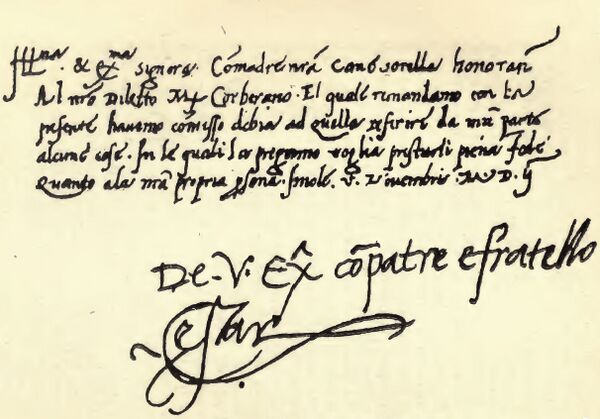 Illma. & Exma Signora Comadre nrã come sorella honoran
Al nro Diletto Mx Corberano. El quale rimandamo con la
presente havemo cõmisso debia ad quella referire da mia parte
alcune cose. In le quali lor pregamo voglia prestarli piena fede
Quanto a la mia propria psona. Imole. V. Novembris. M. D. ij
De. V. Ex cõpatre e fratello
Cesar